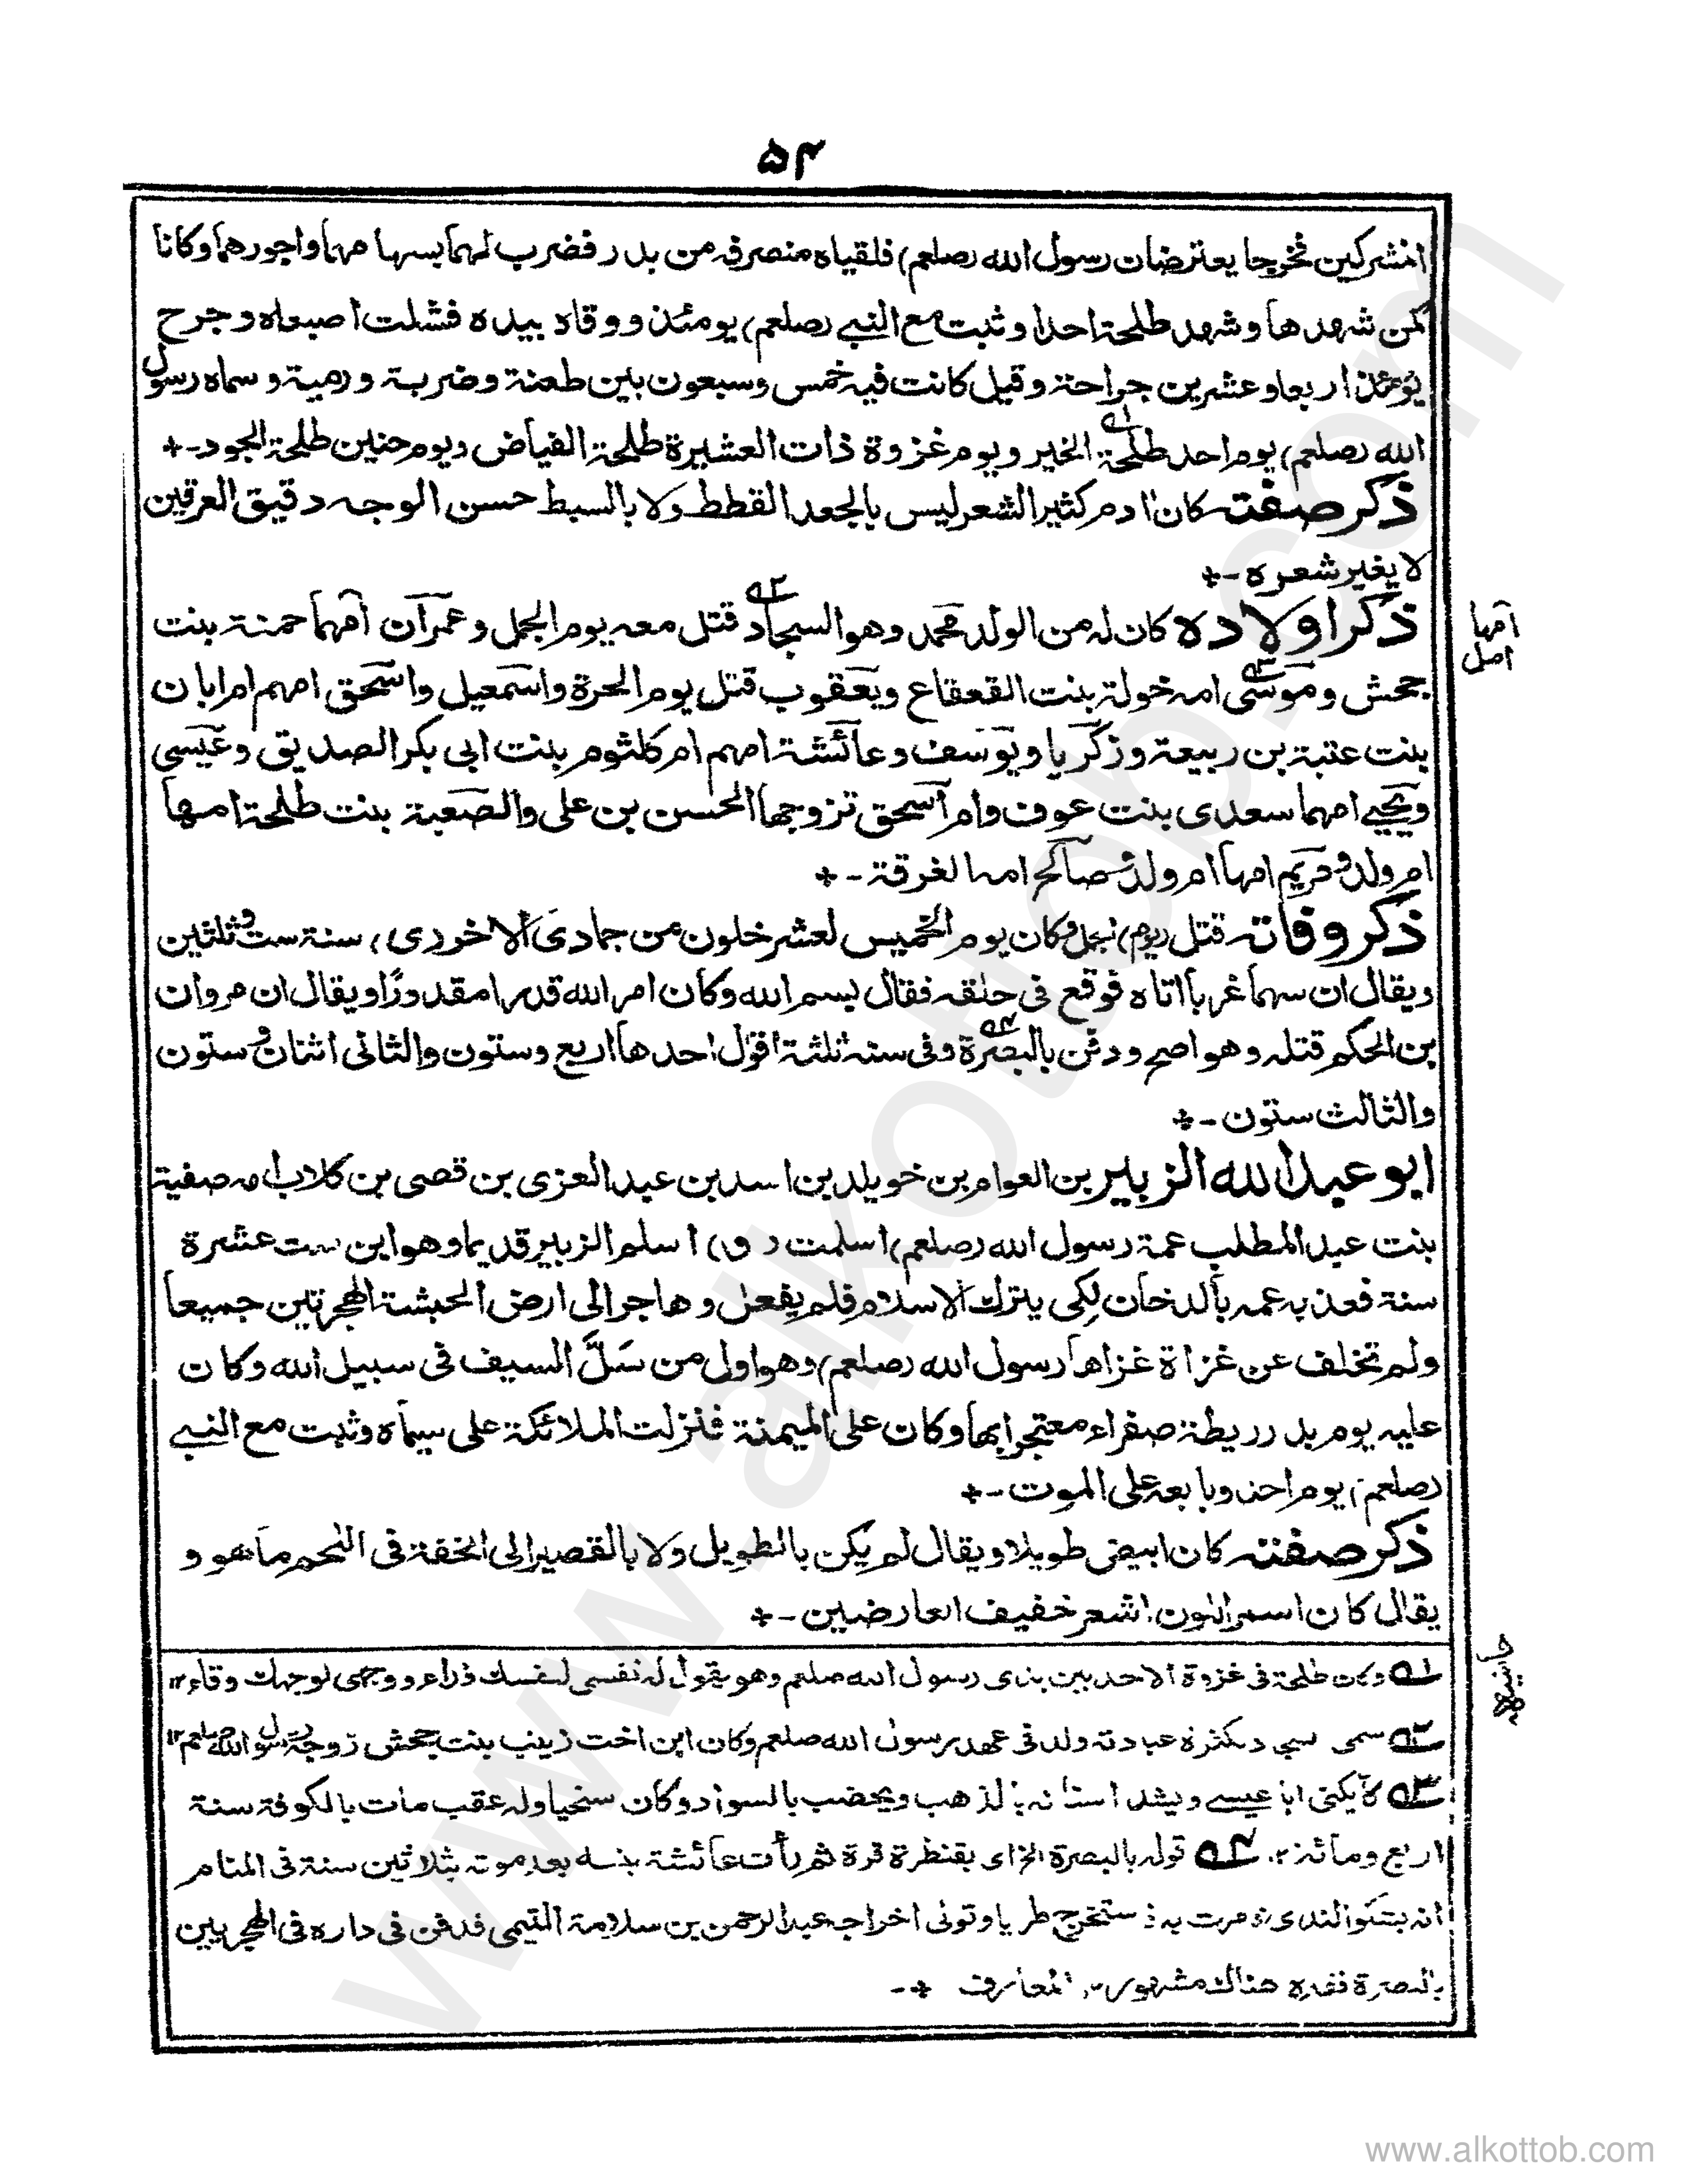 ۵۴
المشركين فخرجا يعترضان رسول الله (صلعم) فلقياه منصرفه من بدر فضرب لهما بسهامهما واجورهما وكانا
كمن شهدها وشهد طلحة احدا وثبت مع النبي (صلعم) يومئذ ووقاه بيده فشلت اصبعاه وجرح
يومئذ اربعا وعشرين جراحة وقيل كانت فيه خمس وسبعون بين طعنة وضربة ورمية وسماه رسول
الله (صلعم) يوم احد طلحة الخير ويوم غزوة ذات العشيرة طلحة الفياض ويوم حنين طلحة الجود -+
ذكر صفته كان ادم كثير الشعر ليس بالجعد القطط ولا بالسبط حسن الوجه دقيق العرقين
لا يغير شعره -+
ذكر اولاده كان له من الولد محمد وهو السجاد قتل معه يوم الجمل وعمران امهما حمنة بنت
امها
اصل
جحش وموسى امه خولة بنت القعقاع ويعقوب قتل يوم الحرة واسمعيل واسحق امهم ام ابان
بنت عتبة بن ربيعة وزكريا ويوسف وعائشة امهم ام كلثوم بنت ابى بكر الصديق وعيسى
ويحيى امهما سعدى بنت عوف وام اسحق تزوجها الحسن بن على والصعبة بنت طلحة امها
ام ولد ومريم امها ام ولد وصالح امه الفرقة -+
ذكر وفاته قتل (يوم) الجمل وكان يوم الخميس لعشر خلون من جمادى الاخر(ى) سنة ست وثلثين
ويقال ان سهما غربا اتاه فوقع فى حلقه فقال بسم الله وكان امر الله قدرا مقدورا ويقال ان مروان
بن الحكم قتله وهو اصح ودفن بالبصرة وفى سنه ثلثة اقوال احدها اربع وستون والثانى اثنان وستون
والثالث ستون -+
ابو عبد الله الزبير بن العوام بن خويلد بن اسد بن عبد العزى بن قصى بن كلاب امه صفية
بنت عبد المطلب عمة رسول الله (صلعم) اسلمت (و) اسلم الزبير قديما وهو ابن ست عشرة
سنة فعذبه عمه بالدخان لكى يترك الاسلام فلم يفعل وهاجر الى ارض الحبشة الهجرتين جميعا
ولم تخلف عن غزاة غزاها رسول الله (صلعم) وهو اول من سَلَّ السيف فى سبيل الله وكان
عليه يوم بدر ريطة صفراء معتجرا بها وكان على الميمنة فنزلت الملائكة على سيماه وثبت مع النبي
(صلعم) يوم احد وبايعه على الموت -+
ذكر صفته كان ابيض طويلا ويقال لم يكن بالطويل ولا بالقصير الى الخفة فى اللحم ما هو و
يقال كان اسمر اللون اشعر خفيف العارضين -+
حاشيه
١ وكان طلحة فى غزوة الاحد بين يدى رسول الله صلعم وهو يقول له نفسى لنفسك فداء ووجهى لوجهك وقاء ١٢
٢ سمى لكثرة عبادته ولد فى عهد رسول الله صلعم وكان ابن اخت زينب بنت جحش زوجة رسول الله صلعم ١٢
٣ كان يكنى ابا عيسے ويشد اسنانه بالذهب ويخضب بالسواد وكان سخيا وله عقب مات بالكوفة سنة
اربع ومائة ١٢ ٤ قوله بالبصرة الخ اى بقنطرة قرة ثم رأت عائشة بنته بعد موته بثلاثين سنة فى المنام
انه يشكو الندى فامرت به فاستخرج طريا وتولى اخراجه عبد الرحمن بن سلامة التيمى فدفن فى داره فى الهجريين
بالبصرة فقبره هناك مشهور ١٢ المعارف -+
www.alkottob.com